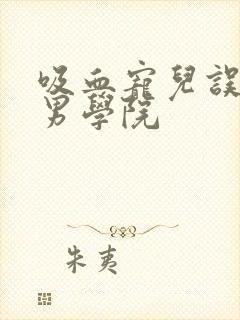 吸血寵兒誤
男學院
朱夷